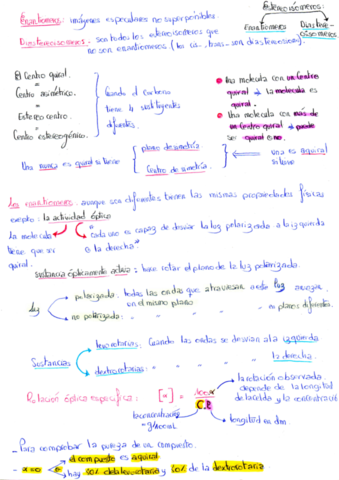 Estereoisómeros:
Enantiómeros Diastere-
oisómeros
Enantiómeros: imágenes especulares no superponibles.
Diastereoisómeros: son todos los estereoisómeros que
no son enantiómeros (los cis-, trans- son diastereoisóm).
El Centro quiral.
=
Centro asimétrico.
=
Estereo centro.
=
Centro estereogénico.
Cuando el carbono
tiene 4 sustituyentes
diferentes.
Una molécula con un Centro
quiral → la molécula es
quiral.
Una molécula con más de
un Centro quiral → puede
ser quiral o no.
Una nunca es quiral si tiene
plano de simetría
Centro de simetría.
una es aquiral
si tiene
Los enantiómeros: aunque sea diferentes tienen las mismas propiedades físicas
excepto: la actividad óptica
La molécula
tiene que ser
quiral.
cada uno es capaz de desviar la luz polarizada a la izquierda
o a la derecha.
sustancia ópticamente activa: hace rotar el plano de la luz polarizada.
Luz
polarizada: todas las ondas que atraviesan a esta luz avanzan
en el mismo plano
no polarizada: " " " " en planos diferentes.
Sustancias
levorotarias: Cuando las ondas se desvían a la izquierda
dextrorotarias: " " " " la derecha.
Rotación óptica específica: [α] = 100α / C.l
la rotación observada,
depende de la longitud
de la celda y la concentración
la concentración
g/100ml
longitud en dm
- Para comprobar la pureza de un compuesto.
- α=0
el compuesto es aquiral
hay 50% del levorotario y 50% de la dextrorotaria